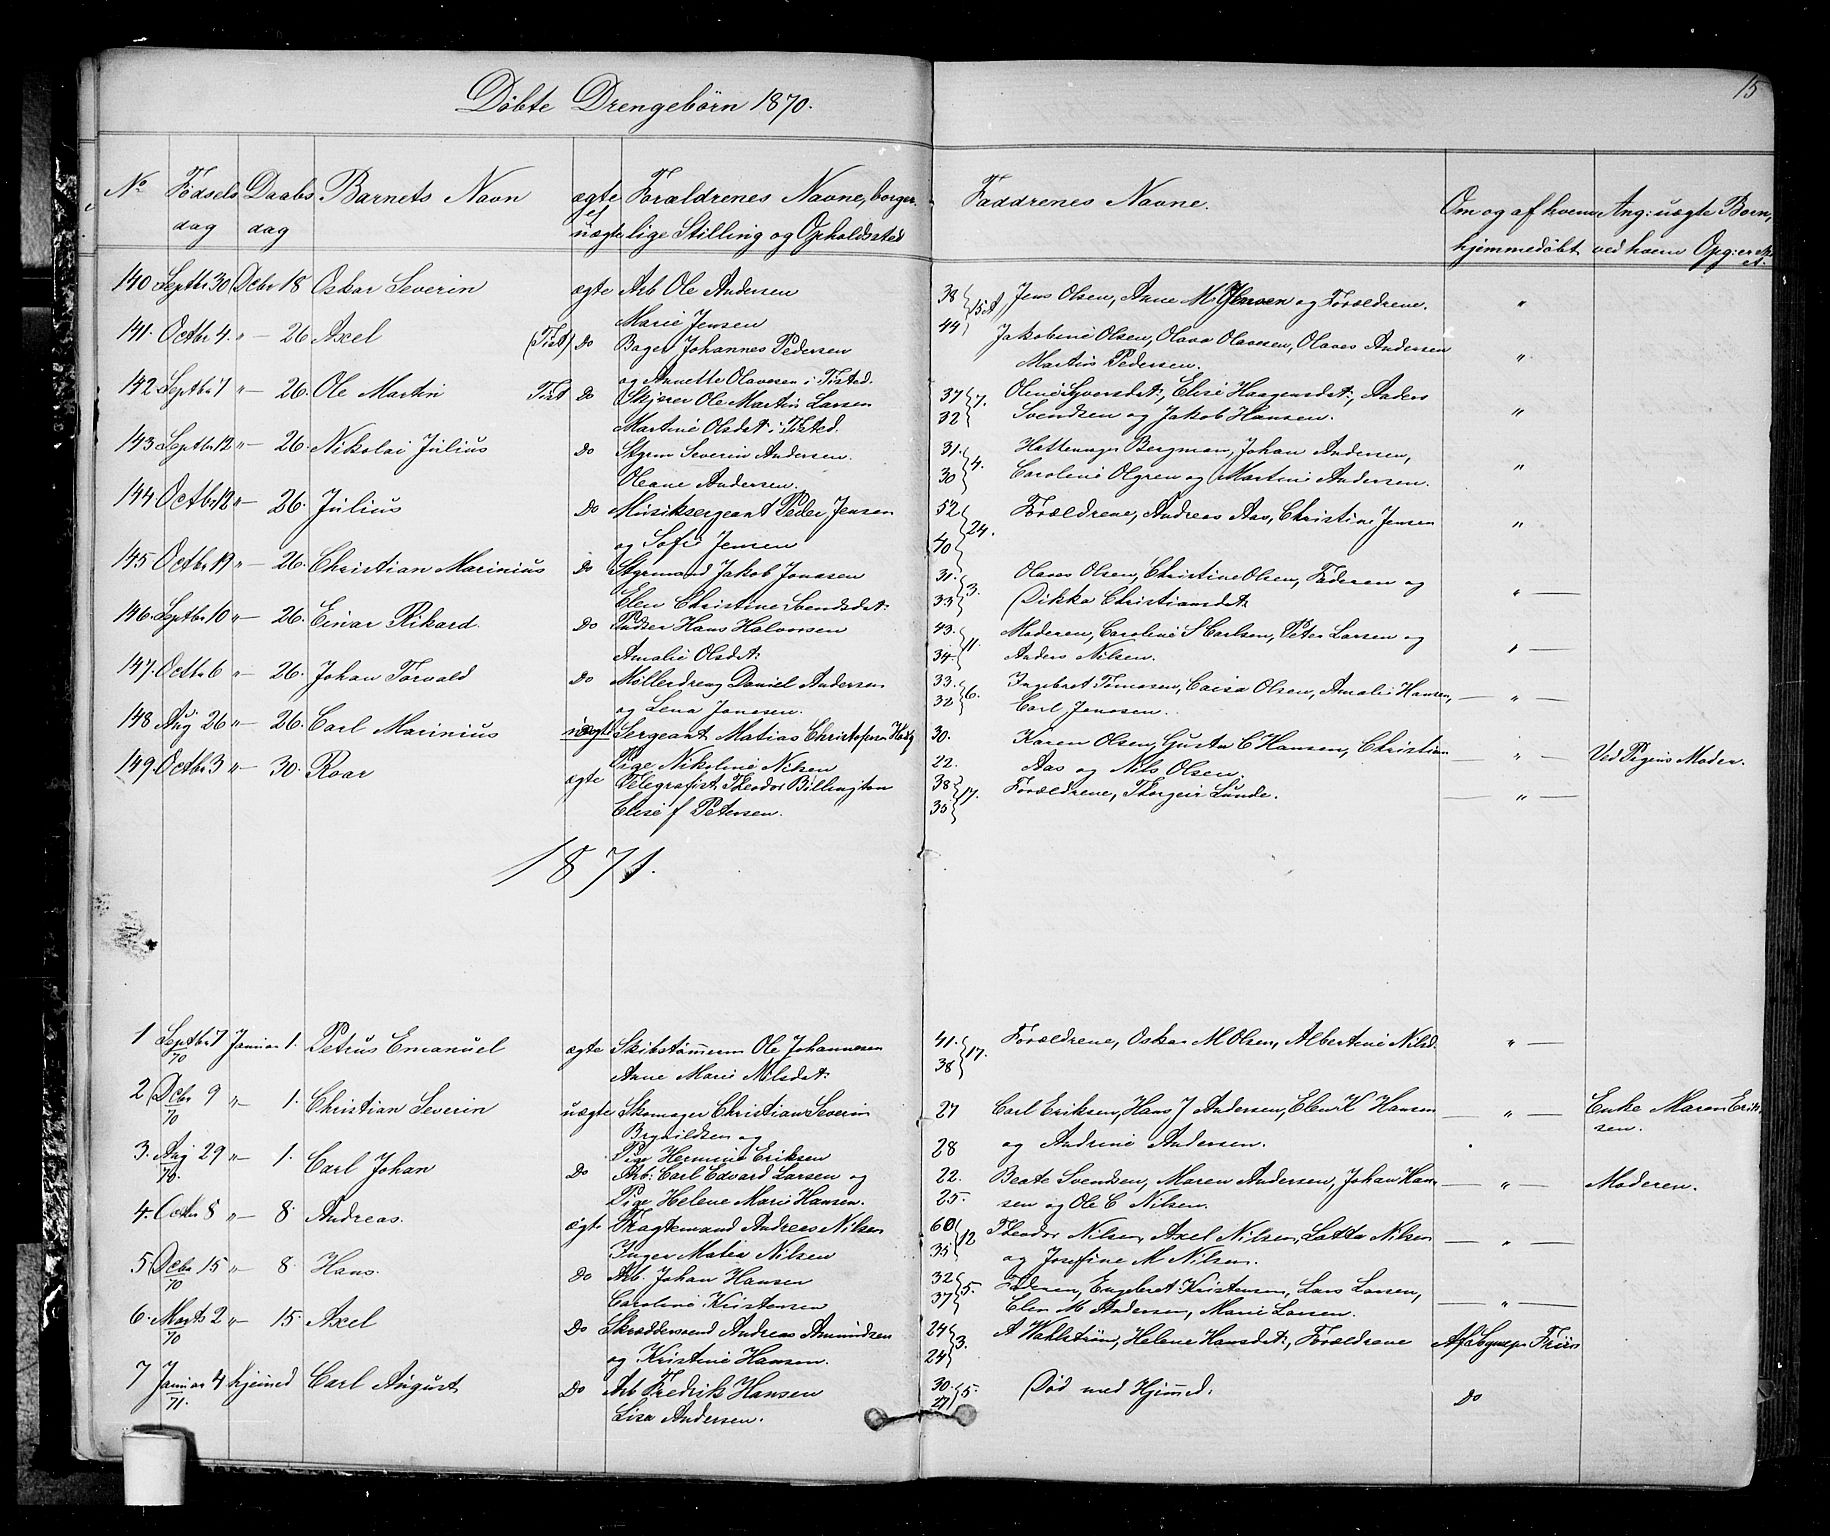 Döbte Drengebörn 1870.
15
No Födsels Daabs Barnets Navn ægte Forældrenes Navne, borger Faddrenes Navne. Om og af hvem Ang: uægte Born,
dag dag el uægte lige Stilling og Opholdssted hjemmedöbt ved hvem Opg: er
140 Septbr 30 Dcbr 18 Oskar Severin ægte Arb Ole Andersen 38 Jens Olsen, Anne M Jensen og Forældrene. "
Marie Jensen 44
141. Octbr 4. " — 26 Axel (Tist) Do Bager Johannes Pedersen Jakobine Olsen, Olava Olavesen, Olaves Andersen
og Annette Olavesen i Tisted. Martin Pedersen. "
142 Septbr 7 " — 26. Ole Martin Tist Do Skjærer Ole Martin Larsen 37 7. Olene Syversdat:, Elise Haagensdat:, Anders
Martine Olsdat: i Tisted. 32 Svendsen og Jakob Hansen. "
143 Septbr 12 " — 26. Nikolai Julius Do Styrm Severin Andersen. 31. 4. Bergman, Johan Andersen,
Oleane Andersen. 30 Caroline Olgren og Martine Andersen. "
144 Octbr 12 " — 26. Julius Do Musiksergeant Peder Jensen 52 24. Forældrene, Andreas Aas, Christine Jensen "
og Sofie Jensen 40
145 Octbr 19 " — 26. Christian Marinius Do Styrmand Jakob Jonasen 31. 3. Olaves Olsen, Christine Olsen, Faderen og
Elen Christine Svendsdat: 33 Dikka Christiansdat: " —
146. Septbr 10 " — 26. Einar Rikard. Do Pudser Hans Halvorsen 43. 11. Moderen, Caroline S Carlsen, Peter Larsen og
Amalie Olsdat: 34 Anders Nilsen. " —
147. Octbr 6 " — 26. Johan Torvald Do Möllerdreng Daniel Andersen 33. 6. Ingebret Tomasen, Caisa Olsen, Amalie Hansen,
og Lena Jonasen. 32 Carl Jonasen. — " —
148 Aug 26 " — 26. Carl Marinius uægte Sergeant Matias Christofersen 30. Karen Olsen, Gusta C Hansen, Christian
Pige Nikoline Nilsen 22. Aas og Nils Olsen. " — Ved Pigens Moder.
149. Octbr 3 " — 30. Roar ægte Telegrafist Theodor Billington 38 17. Forældrene, Thorgeir Lunde. — " —
Elise f Petersen. 35
1871.
1 Septbr 7 70 Januar 1. Petrus Emanuel ægte Skibstömerm Ole Johannesen 41. 17. Forældrene, Oskar M Olsen, Albertine Nilsd. " —
Anne Marie Nilsdat: 38
2 Dcbr 9 70 " — 1. Christian Severin uægte Skomager Christian Severin 27 Carl Eriksen, Hans J Andersen, Elen K Hansen — " — Enke Maren Erik
Brynildsen og 28 og Andrine Andersen. sen.
Pige Hermine Eriksen
3. Aug 29 70. " — 1. Carl Johan Do Arb: Carl Edvard Larsen og 22. Beate Svendsen, Maren Andersen, Johan Han — " — Moderen.
Pige Helene Marie Hansen. 25 sen og Ole C Nilsen.
4. Octbr 8 " — 8. Andreas. ægte Fragtemand Andreas Nilsen 60 12 Theodor Nilsen, Axel Nilsen, Latta Nilsen
Inger Matea Nilsen 35 og Josefine M Nilsen. — " —
5 Dcbr 15 70 " — 8. Hans. Do Arb. Johan Hansen 32 5. Faderen, Engebret Kristensen, Lars Larsen,
Caroline Kristensen 37 Elen M Andersen, Marie Larsen. — " —
6. Marts 2 70 " — 15. Axel Do Skræddersvend Andreas Amundsen 24 3. A Wahlström, Helene Hansdat:, Forældrene Af
og Kristine Hansen. 24
7 Januar 4 71. hjemmed Carl August Do Arb Fredrik Hansen 30. 5. Död med Hjemmed. Do
Lisa Andersen. 27